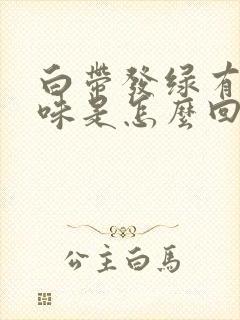 白带發绿有
味是怎麼回
公主白馬